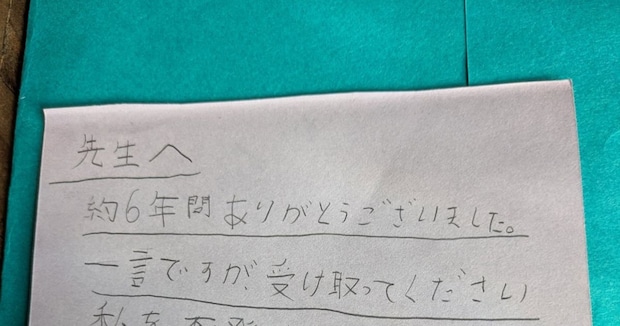 先生へ
約6年間ありがとうございました。
一言ですが、受け取ってください
私を